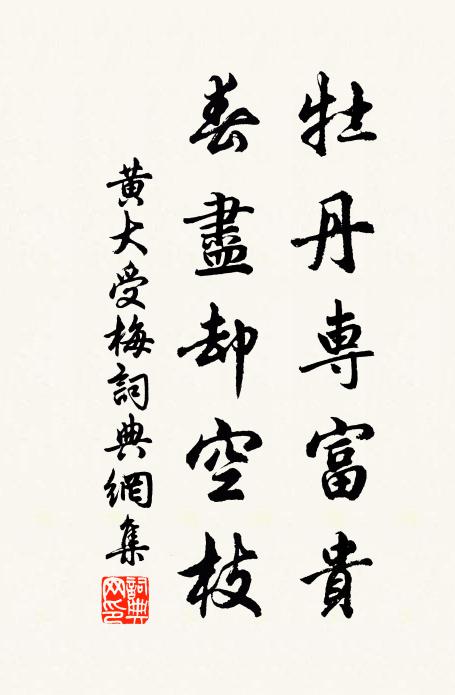 牡丹専富貴
春盡却空枝
黃大受梅詞典網集
詞典網印